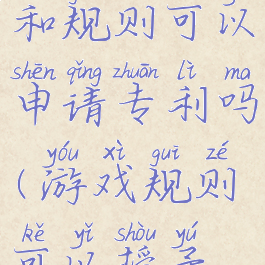 和规则可以
shēn qǐng zhuān lì ma
申请专利吗
yóu xì guī zé
(游戏规则
kě yǐ shòu yú
可以授予